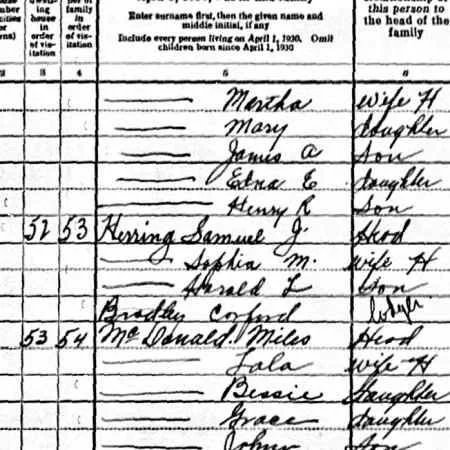 ing
house
in
order
of vis-
itation
family
in
order
of vis-
itation
Enter surname first, then the given name and
middle initial, if any
Include every person living on April 1, 1930. Omit
children born since April 1, 1930
this person to
the head of the
family
3 4 5 6
Martha wife H
Mary daughter
James A Son
Edna E daughter
Henry R Son
52 53 Herring Samuel J Head
Sophia M. wife H
Harold L Son
Bradley Corford lodger
53 54 McDonald Miles Head
Lala wife H
Bessie daughter
Grace daughter
John Son